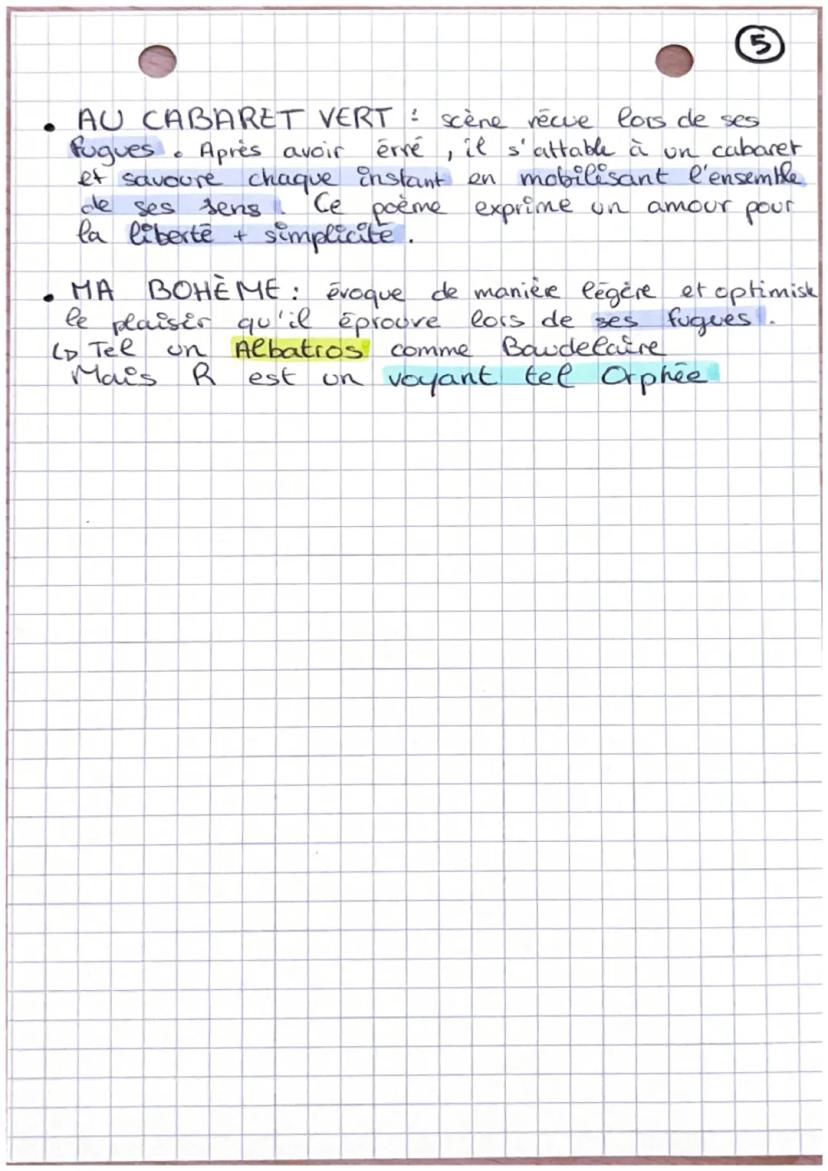 5
• AU CABARET VERT : scène vécue lors de ses
fugues. Après avoir érré, il s'attable à un cabaret
et savoure chaque instant en mobilisant l'ensemble
de ses sens. Ce poème exprime un amour pour
la liberté + simplicité.
• MA BOHÈME : évoque de manière légère et optimiste
le plaisir qu'il éprouve lors de ses fugues.
↳ Tel un Albatros comme Baudelaire
Mais R est un voyant tel Orphée